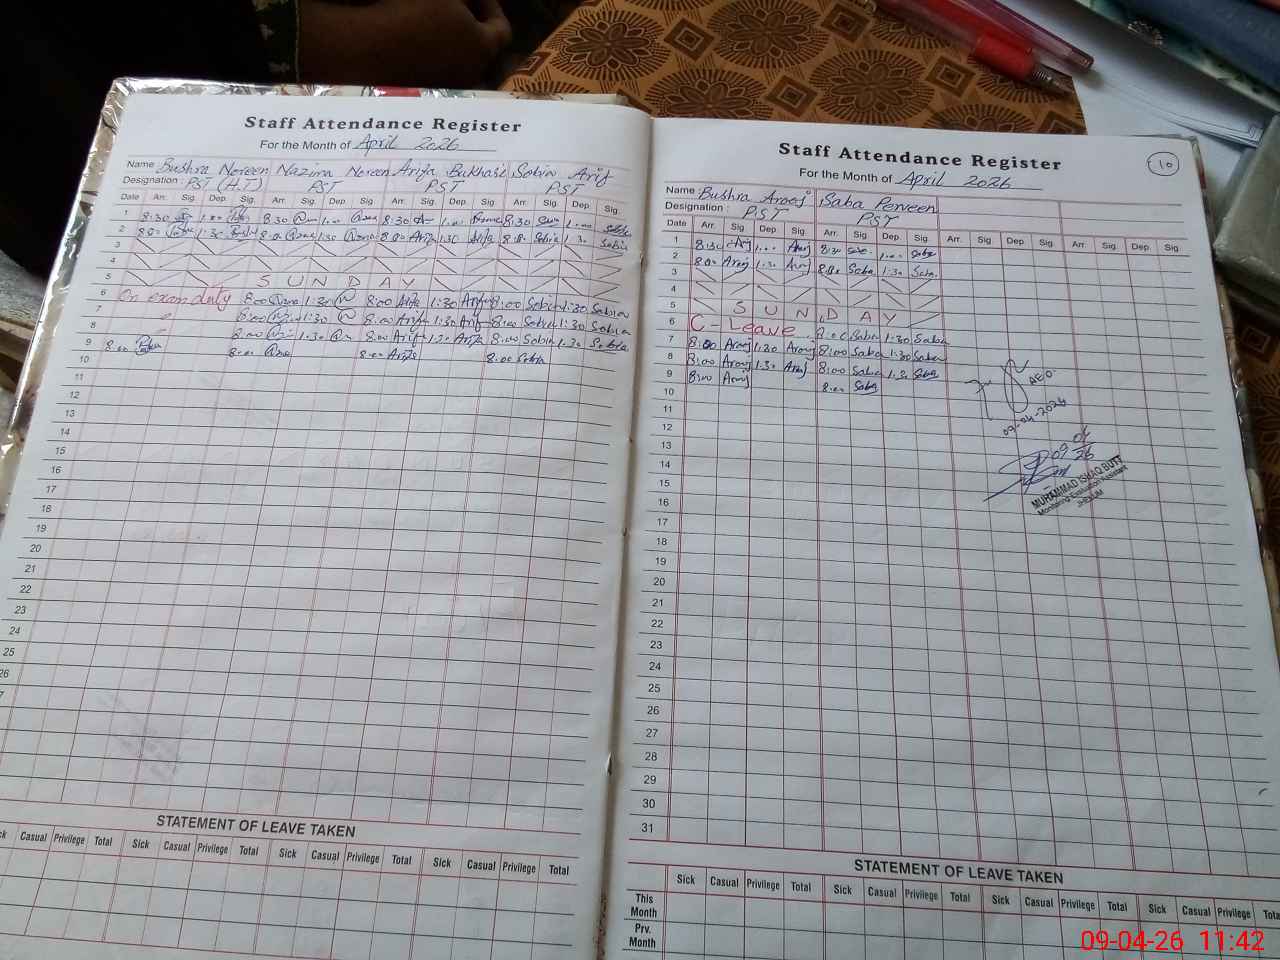 Staff Attendance Register
For the Month of April 2026
Name Bushra Noreen Nazima Noreen Arifa Bukhari Sobia Arif
Designation : PST (H.T) PST PST PST
Date Arr. Sig. Dep. Sig. Arr. Sig. Dep. Sig. Arr. Sig. Dep. Sig. Arr. Sig. Dep. Sig.
1 8:30 8:30 8:30 8:30
2 8:00 1:30 8:00 1:30 8:00 Arifa 1:30 Arifa 8:00 Sobia 1:30 Sobia
3
4
5 SUNDAY
6 On exam duty 8:00 1:30 8:00 Arifa 1:30 Arifa 8:00 Sobia 1:30 Sobia
7 8:00 1:30 8:00 Arifa 1:30 Arifa 8:00 Sobia 1:30 Sobia
8 8:00 1:30 8:00 Arifa 1:30 Arifa 8:00 Sobia 1:30 Sobia
9 8:00 8:00 8:00 Arifa 8:00 Sobia
10
11
12
13
14
15
16
17
18
19
20
21
22
23
24
25
26
27
STATEMENT OF LEAVE TAKEN
Casual Privilege Total Sick Casual Privilege Total Sick Casual Privilege Total Sick Casual Privilege Total
Staff Attendance Register
10
For the Month of April 2026
Name Bushra Arooj Saba Perveen
Designation : PST PST
Date Arr. Sig. Dep. Sig. Arr. Sig. Dep. Sig. Arr. Sig. Dep. Sig. Arr. Sig. Dep. Sig.
1 8:30 Arooj 1:00 Arooj 8:30 Saba 1:00 Saba
2 8:00 Arooj 1:30 Arooj 8:00 Saba 1:30 Saba
3
4
5 SUNDAY
6 C-Leave 8:00 Saba 1:30 Saba
7 8:00 Arooj 1:30 Arooj 8:00 Saba 1:30 Saba
8 8:00 Arooj 1:30 Arooj 8:00 Saba 1:30 Saba
9 8:00 Arooj 8:00 Saba
10
11
12
13
14
15
16
17
18
19
20
21
22
23
24
25
26
27
28
29
30
31
AEO.
09-04-2026
09 04 26
MUHAMMAD ISHAQ BUTT
Monitoring Evaluation Assistant
JHELUM
STATEMENT OF LEAVE TAKEN
Sick Casual Privilege Total Sick Casual Privilege Total Sick Casual Privilege Total Sick Casual Privilege Total
This Month
Prv. Month
09-04-26 11:42